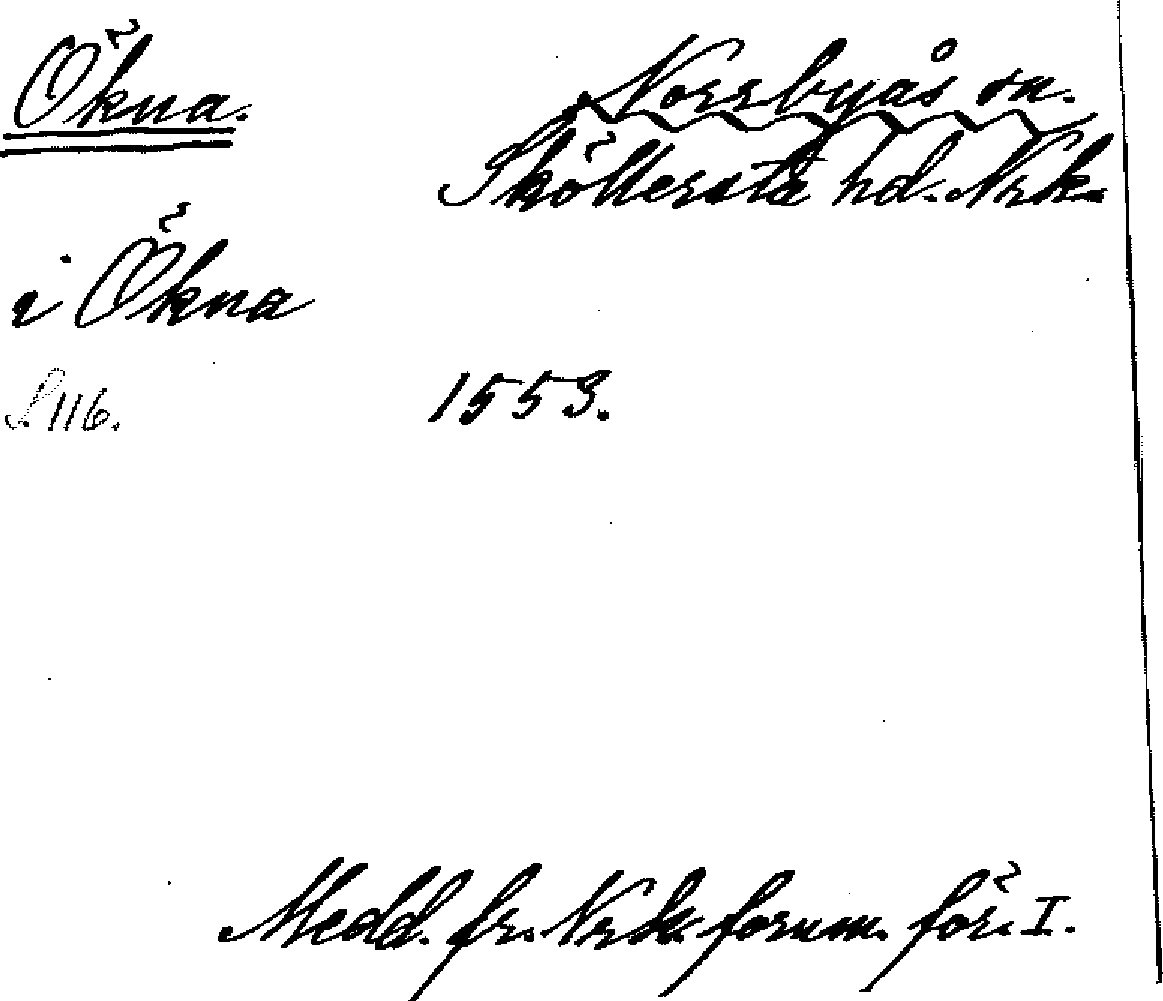 Ökna.
Norrbyås sn.
Sköllersta hd. Nrk.
i Ökna
S. 116.
1553.
Medd. fr. Nrk. fornm. för. I.